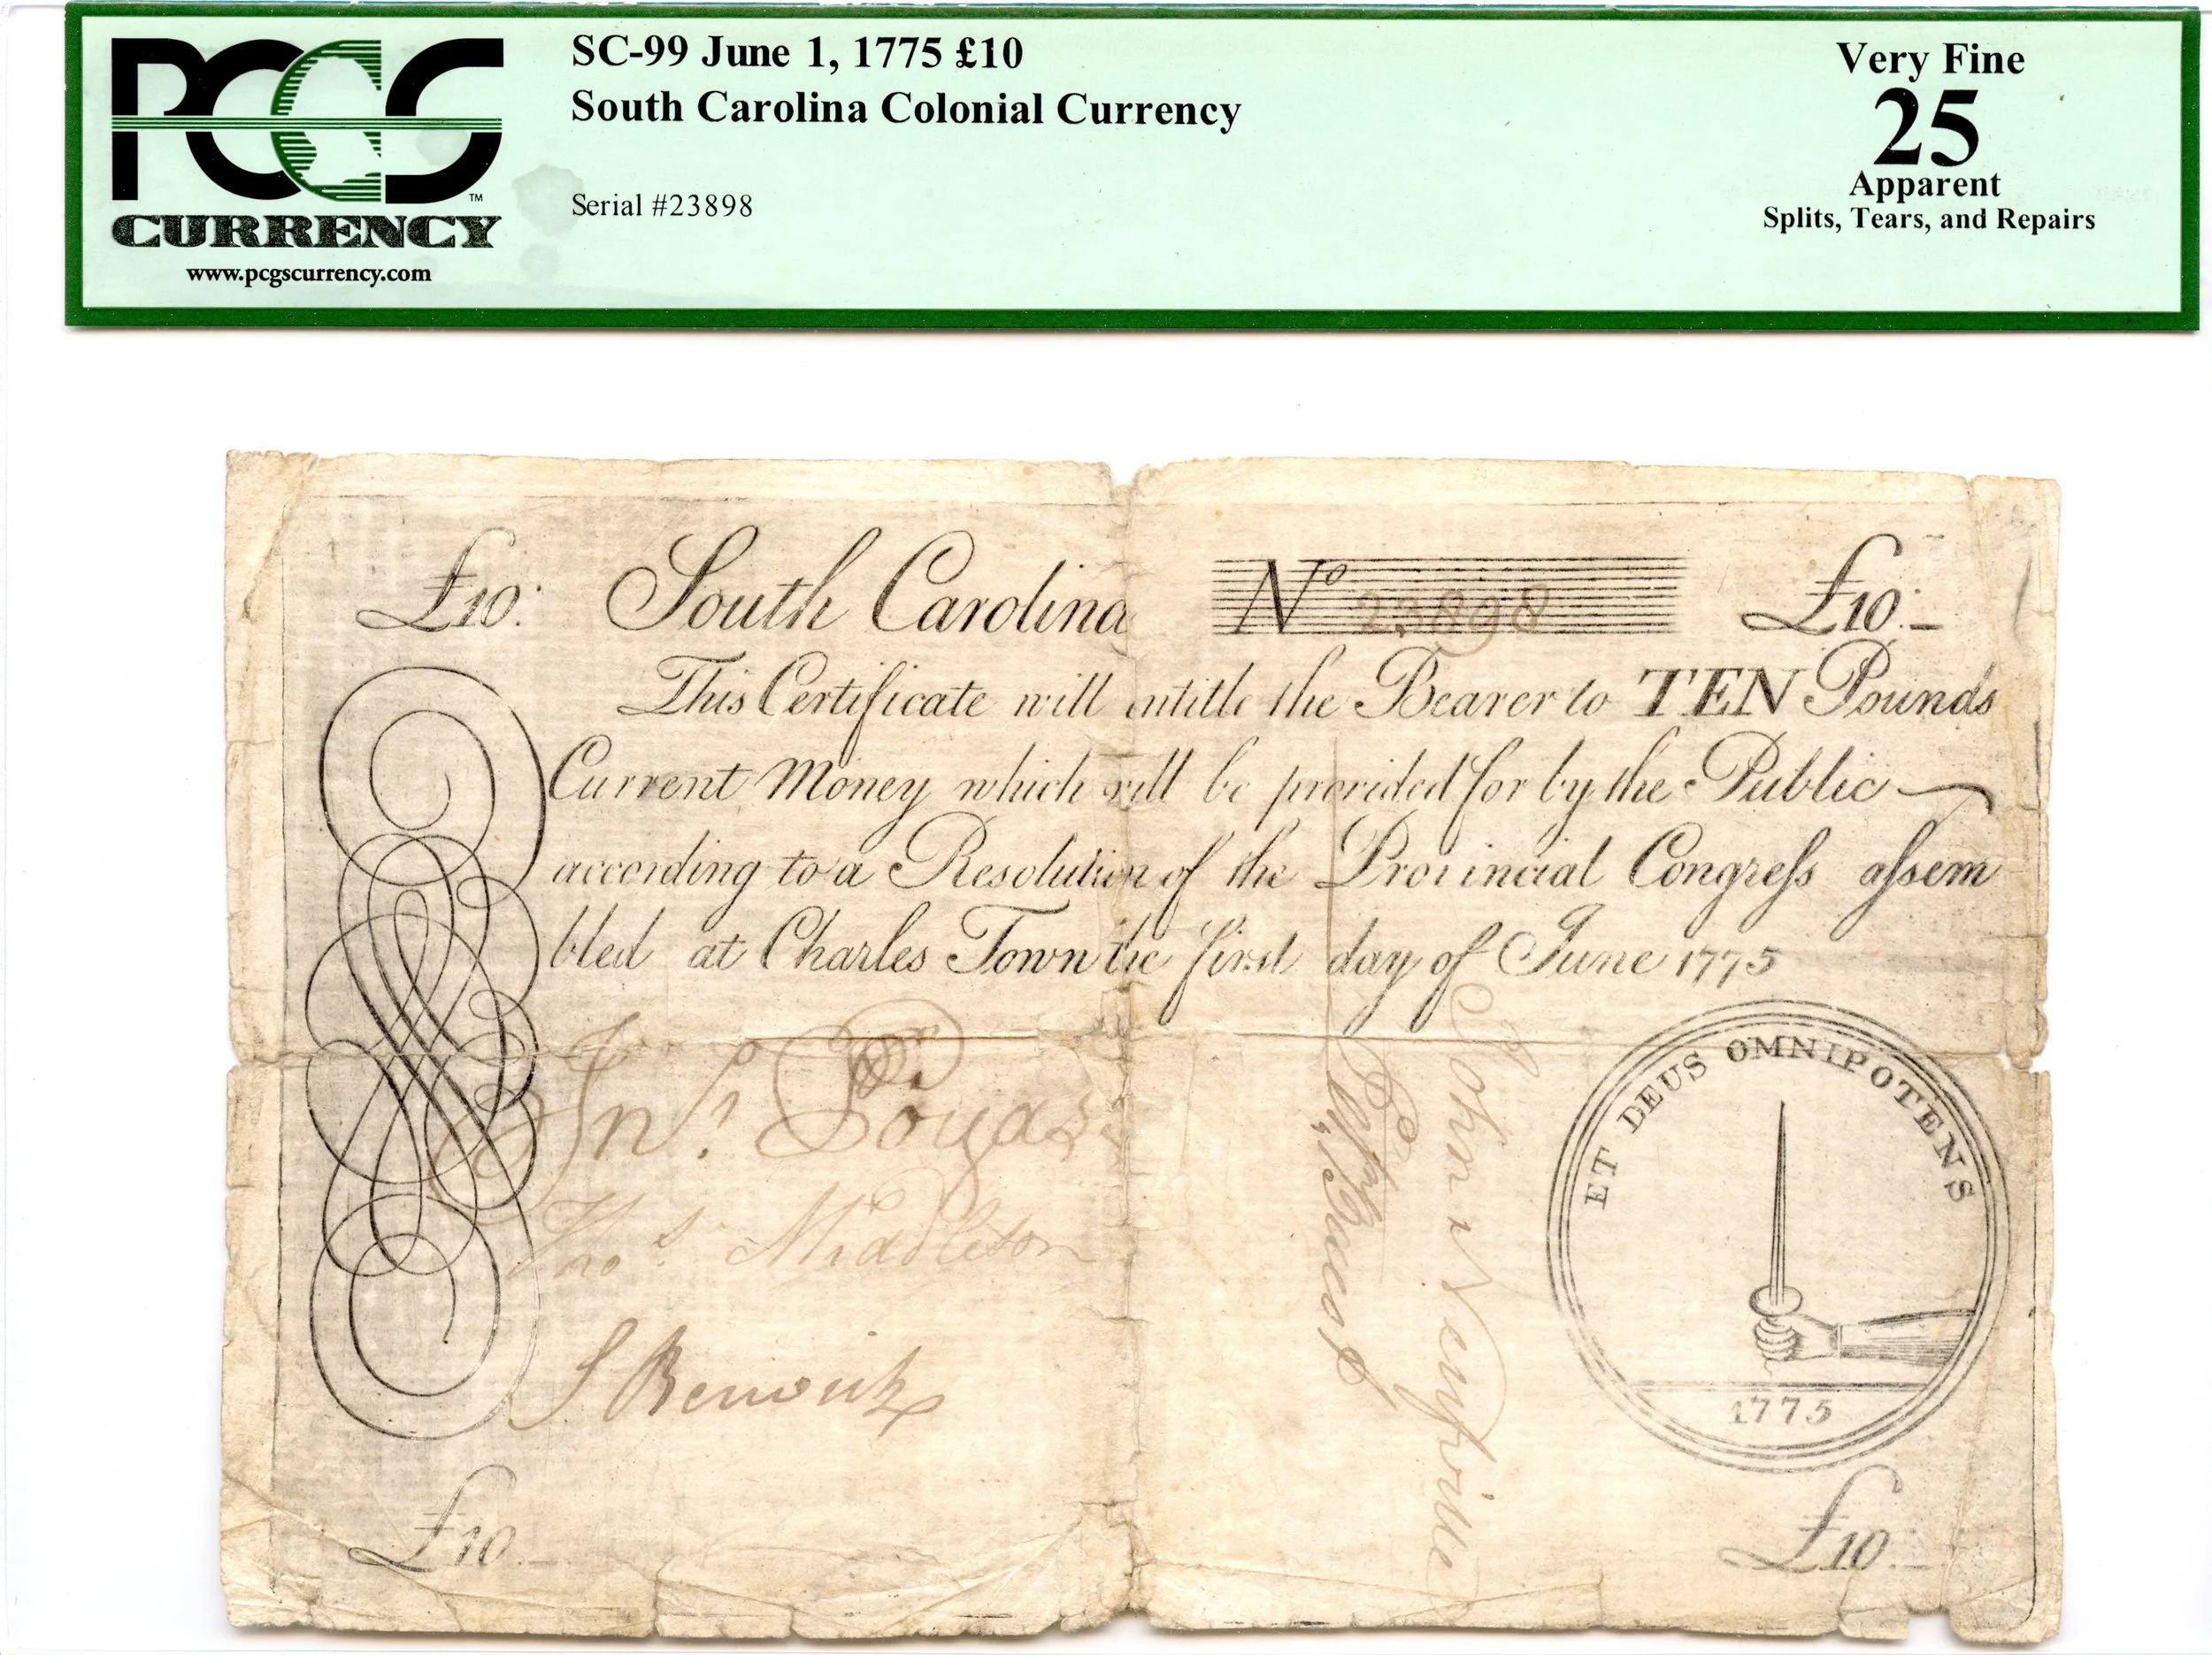 PCGS™
CURRENCY
www.pcgscurrency.com
SC-99 June 1, 1775 £10
South Carolina Colonial Currency
Serial #23898
Very Fine
25
Apparent
Splits, Tears, and Repairs
£10: South Carolina No 23898 £10:-
This Certificate will entitle the Bearer to TEN Pounds
Current Money which will be provided for by the Public
according to a Resolution of the Provincial Congreſs aſsem
bled at Charles Town the first day of June 1775
Jno.
Thos. Middleton
S Berwick
John Neufville
ET DEUS OMNIPOTENS
1775
£10
£10:-